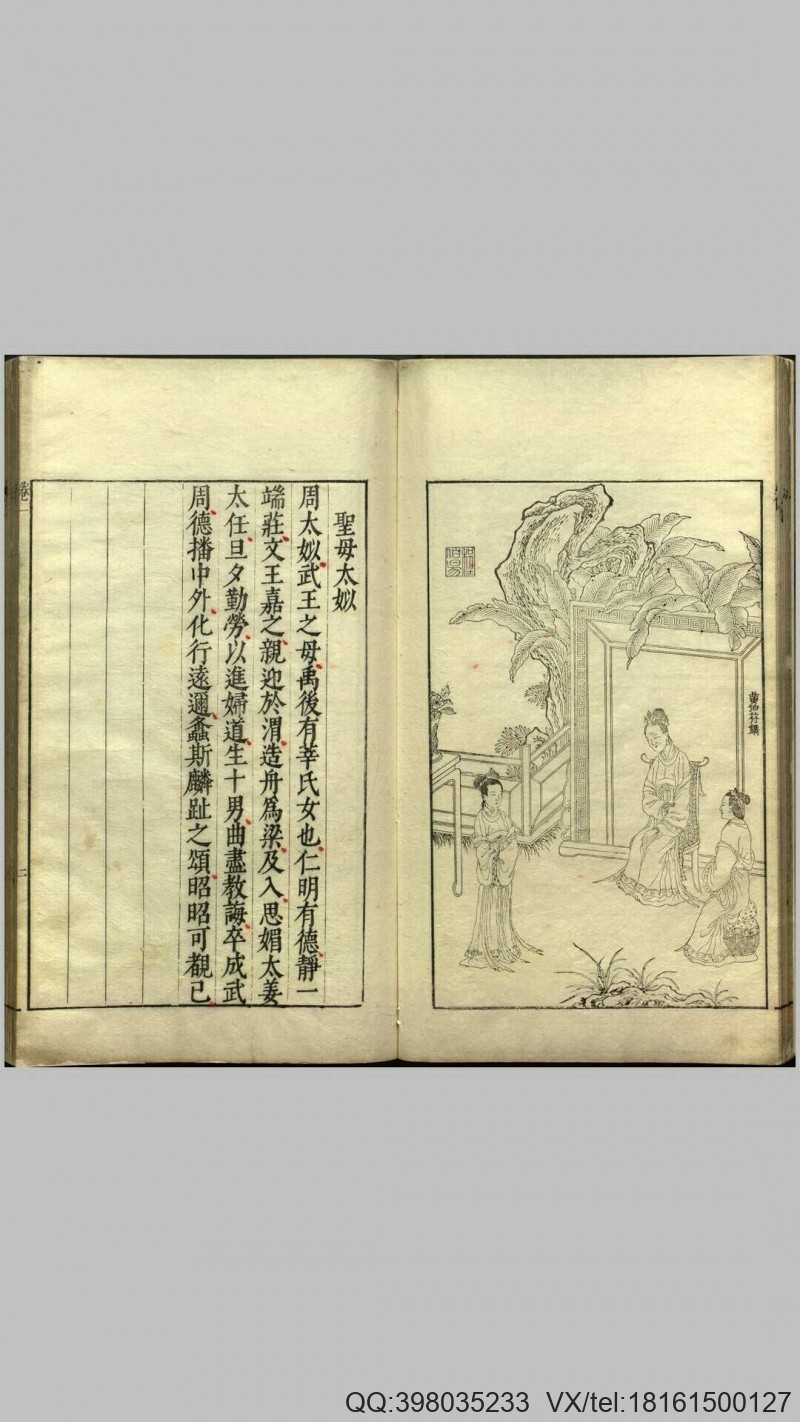 黄伯符鐫
聖母太姒
周太姒武王之母禹後有莘氏女也仁明有德靜一
端莊文王嘉之親迎於渭造舟爲梁及入思媚太姜
太任旦夕勤勞以進婦道生十男曲盡教誨卒成武
周德播中外化行遠邇螽斯麟趾之頌昭昭可觀已
卷一
二
QQ:398035233 VX/tel:18161500127